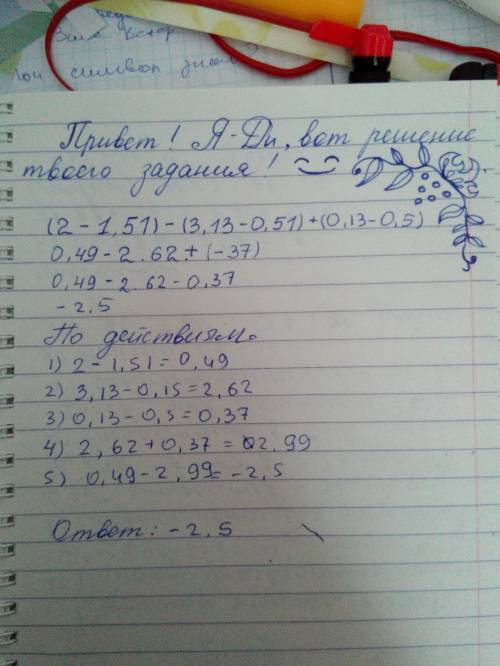 Зате Вскар
символ
Привет! Я-Ди, вот решение
твоего задания!
(2 - 1,51) - (3,13 - 0,51) + (0,13 - 0,5)
0,49 - 2.62 + (-37)
0,49 - 2.62 - 0,37
- 2,5
По действиям.
1) 2 - 1,51 = 0,49
2) 3,13 - 0,15 = 2,62
3) 0,13 - 0,5 = 0,37
4) 2,62 + 0,37 = 2.99
5) 0,49 - 2,99 = -2,5
Ответ: -2,5